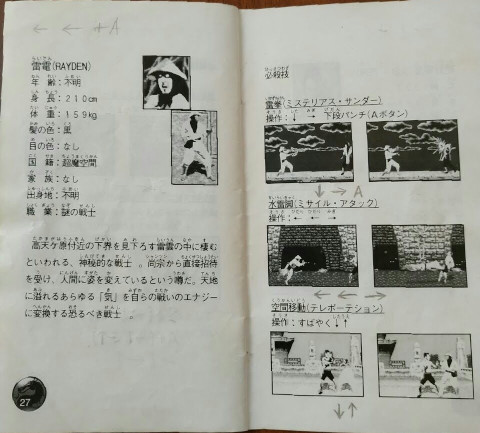 ← ← +A
雷電(RAYDEN)
年　齢：不明
身　長：210cm
体　重：159kg
髪の色：黒
目の色：なし
国　籍：超魔空間
家　族：なし
出身地：不明
職　業：謎の戦士
高天ケ原付近の下界を見下ろす雷雲の中に棲む
といわれる、神秘的な戦士。尚宗から直接招待
を受け、人間に姿を変えているという噂だ。天地
に溢れるあらゆる『気』を自らの戦いのエナジー
に変換する恐るべき戦士。
27
必殺技
(ミステリアス・サンダー)
操作：↓ → 下段パンチ(Aボタン)
↓ → A
(ミサイル・アタック)
操作：← ← →
← ← →
空間移動(テレポーテション)
操作：すばやく↓↑
↓↑